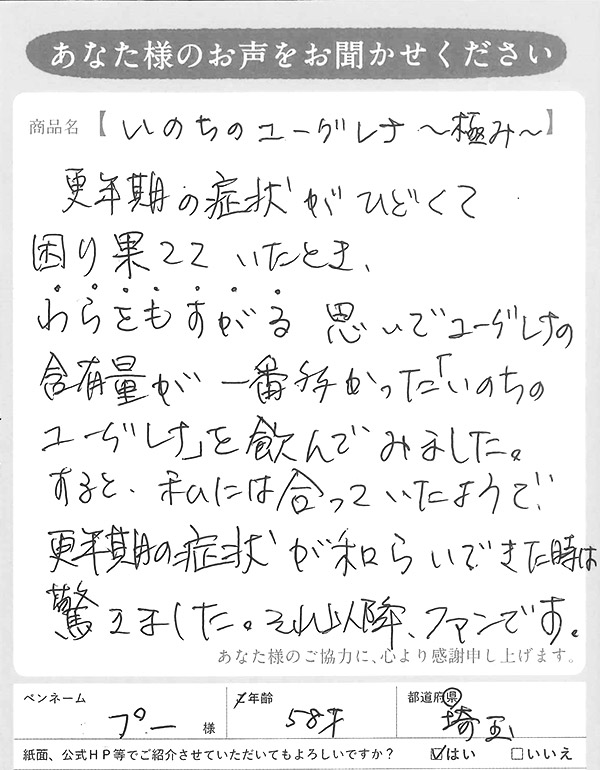 あなた様のお声をお聞かせください
商品名【いのちのユーグレナ～極み～】
更年期の症状がひどくて
困り果てていたとき、
わらをもすがる思いでユーグレナの
含有量が一番多かった「いのちの
ユーグレナ」を飲んでみました。
すると、私には合っていたようで、
更年期の症状が和らいできた時は
驚きました。それ以降、ファンです。
あなた様のご協力に、心より感謝申し上げます。
ペンネーム プー 様 年齢 58才 都道府県 埼玉
紙面、公式HP等でご紹介させていただいてもよろしいですか？ ☑はい □いいえ